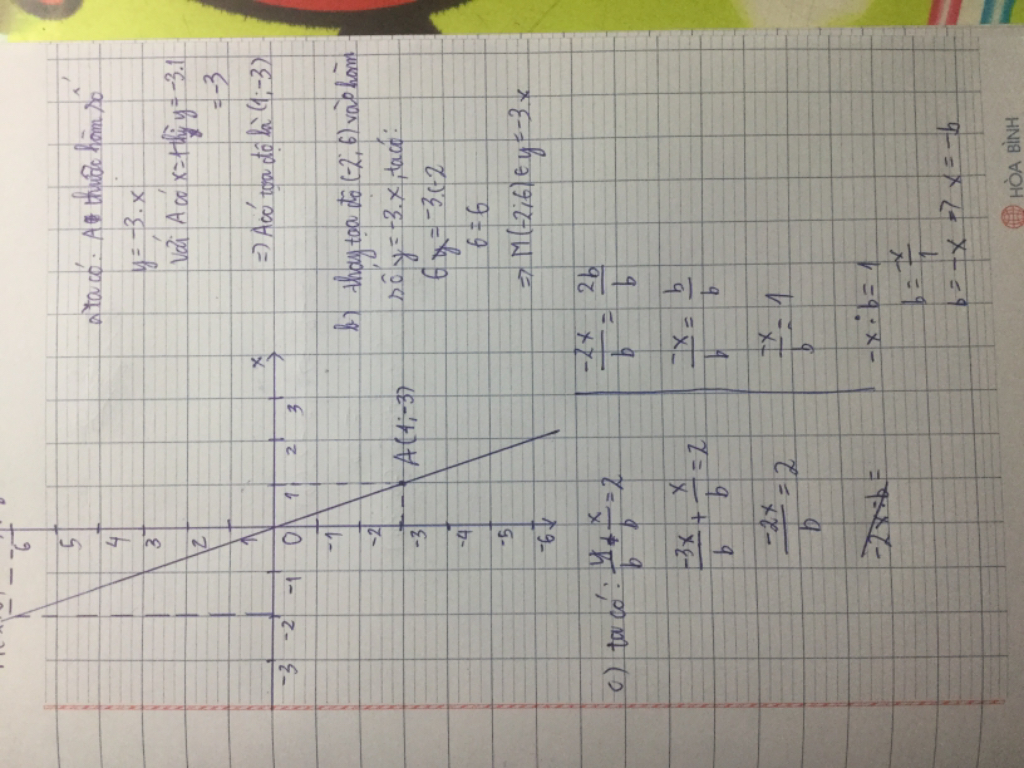 6
5
4
3
2
1
0
-3 -2 -1
1 2 3 x
-1
-2
-3
-4
-5
-6
A(1;-3)
a) ta có: A thuộc hàm số
y = -3.x
Với A có x=1 thì y = -3.1
= -3
=) A có tọa độ là (1;-3)
b) thay tọa độ (-2,6) vào hàm
số y = -3.x, ta có:
6 = -3.(-2
6 = 6
=> M(-2;6) ∈ y = -3x
c) ta có: y/b + x/b = 2
-3x/b + x/b = 2
-2x/b = 2
-2x.b =
-2x/b = 2b/b
-x/b = b/b
-x/b = 1
-x : b = 1
b = -x/1
b = -x => x = -b
HÒA BÌNH